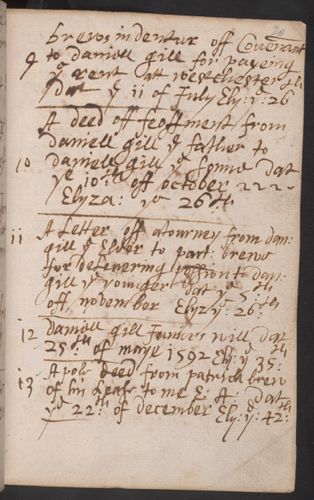 brews indentur off Covenant
9 to daniell gill for payeing
ye rent att westchester
dat ye 11 of July Ely: y: 26
A deed off feoffment from
daniell gill ye father to
10 daniell gill ye sonne dat
ye 10th off october
Elyza: ye 26th
11 A Letter off atourney from dan:
gill ye Elder to part: brews
for delivering to dan:
gill ye younger dat ye 5th
off november Elyz y: 26th
12 daniell gill will dat
25th of maye 1592 Ely: y: 35th
13 A pole deed from patrick brew
of his Lease to me E: A: dat
ye 22th of december Ely: y: 42th